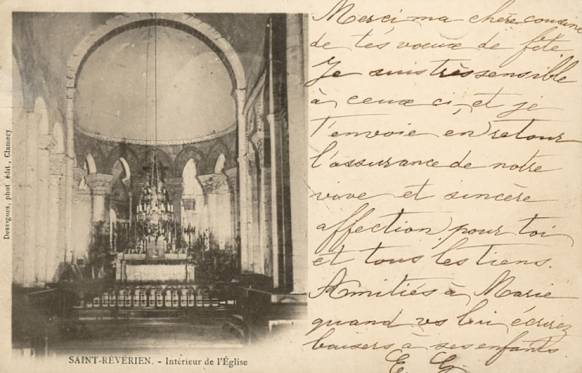 Desvignes, phot. édit., Clamecy
SAINT-RÉVÉRIEN. - Intérieur de l'Église
Merci ma chère cousine
de tes vœux de fête
Je suis très sensible
à ceux ci, et je
t'envoie en retour
l'assurance de notre
vive et sincère
affection pour toi
et tous les tiens.
Amitiés à Marie
quand vs lui écrirez
baisers à ses enfants
E. G.